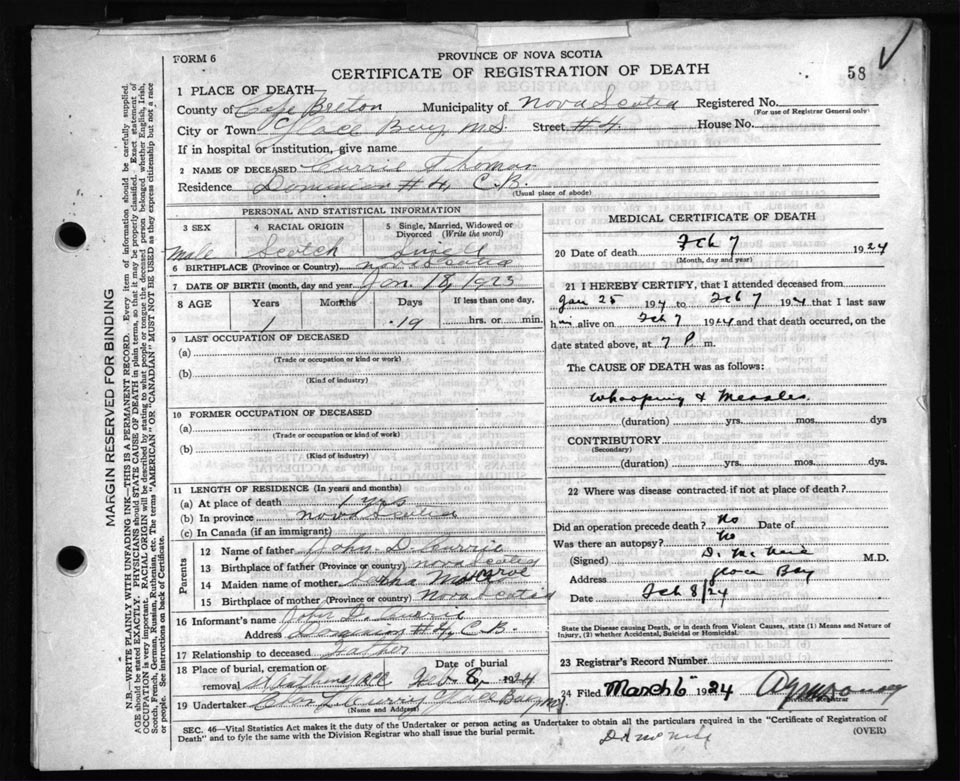 FORM 6
PROVINCE OF NOVA SCOTIA
CERTIFICATE OF REGISTRATION OF DEATH
58
1 PLACE OF DEATH—
County of Cape Breton Municipality of Nova Scotia Registered No.
(For use of Registrar General only)
City or Town Glace Bay N.S. Street #4 House No.
If in hospital or institution, give name
2 NAME OF DECEASED Currie Thomas
Residence Dominion #4, C.B.
(Usual place of abode)
PERSONAL AND STATISTICAL INFORMATION
3 SEX 4 RACIAL ORIGIN 5 Single, Married, Widowed or Divorced (Write the word)
Male Scotch Single
6 BIRTHPLACE (Province or Country) Nova Scotia
7 DATE OF BIRTH (month, day and year) Jan. 18, 1923
8 AGE Years Months Days If less than one day,
1 19 hrs. or min.
9 LAST OCCUPATION OF DECEASED
(a)
(Trade or occupation or kind or work)
(b)
(Kind of industry)
10 FORMER OCCUPATION OF DECEASED
(a)
(Trade or occupation or kind of work)
(b)
(Kind of industry)
11 LENGTH OF RESIDENCE (In years and months)
(a) At place of death 1 yrs
(b) In province Nova Scotia
(c) In Canada (if an immigrant)
Parents
12 Name of father John D. Currie
13 Birthplace of father (Province or country) Nova Scotia
14 Maiden name of mother
15 Birthplace of mother (Province or country) Nova Scotia
16 Informant's name John D. Currie
Address Dominion #4, C.B.
17 Relationship to deceased Father
18 Place of burial, cremation or removal Date of burial
Feb 8, 1924
19 Undertaker Glace Bay N.S.
(Name and Address)
MEDICAL CERTIFICATE OF DEATH
20 Date of death Feb 7 1924
(Month, day and year)
21 I HEREBY CERTIFY, that I attended deceased from
Jan 25 1924 to Feb 7 1924 that I last saw
him alive on Feb 7 1924 and that death occurred, on the
date stated above, at 7 P. m.
The CAUSE OF DEATH was as follows:
Whooping & Measles
(duration) yrs. mos. dys
CONTRIBUTORY
(Secondary)
(duration) yrs. mos. dys.
22 Where was disease contracted if not at place of death?
Did an operation precede death? No Date of
Was there an autopsy? No
(Signed) D. McNeil M.D.
Address Glace Bay
Date Feb 8/24
State the Disease causing Death, or in death from Violent Causes, state (1) Means and Nature of Injury, (2) whether Accidental, Suicidal or Homicidal.
23 Registrar's Record Number
24 Filed March 6 1924
SEC. 46—Vital Statistics Act makes it the duty of the Undertaker or person acting as Undertaker to obtain all the particulars required in the "Certificate of Registration of
Death" and to fyle the same with the Division Registrar who shall issue the burial permit.
(OVER)
D. McNeil
MARGIN RESERVED FOR BINDING
N.B.—WRITE PLAINLY WITH UNFADING INK—THIS IS A PERMANENT RECORD. Every item of information should be carefully supplied.
AGE should be stated EXACTLY. PHYSICIANS should STATE CAUSE OF DEATH in plain terms, so that it may be properly classified. Exact statement of
OCCUPATION is very important. RACIAL ORIGIN will be described by stating to what people or tongue the deceased person belonged, whether English, Irish,
Scotch, French, German, Russian, Ruthenian, etc. The terms "AMERICAN" OR "CANADIAN" MUST NOT BE USED as they express citizenship but not a race
or people. See instructions on back of Certificate.